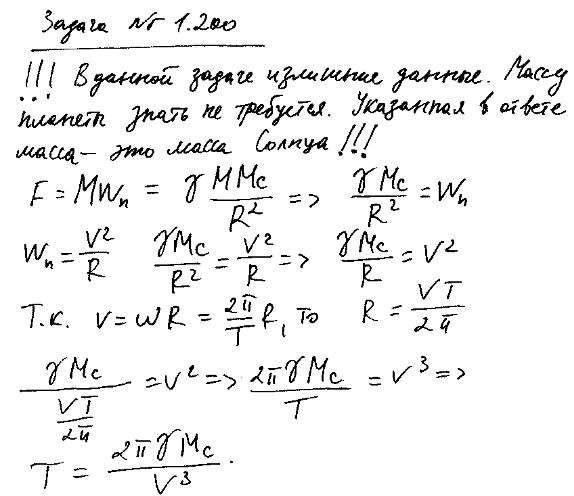 Задача № 1.200
!!! В данной задаче излишние данные. Массу
планеты знать не требуется. Указанная в ответе
масса – это масса Солнца!!!
F = MWₙ = γ MMc/R² => γMc/R² = Wₙ
Wₙ = V²/R γMc/R² = V²/R => γMc/R = V²
Т.к. V = ωR = 2π/T R, то R = VT/2π
γMc/(VT/2π) = V² => 2πγMc/T = V³ =>
T = 2πγMc/V³.